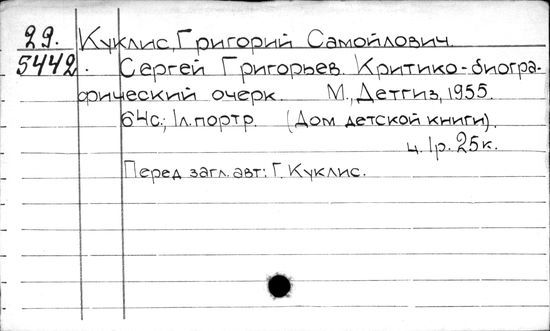 29. Куклис, Григорий Самойлович.
5442. Сергей Григорьев. Критико-биогра-
фический очерк. М., Детгиз, 1955.
64с.; 1л. портр. (Дом детской книги).
ц. 1р. 25к.
Перед загл. авт.: Г. Куклис.